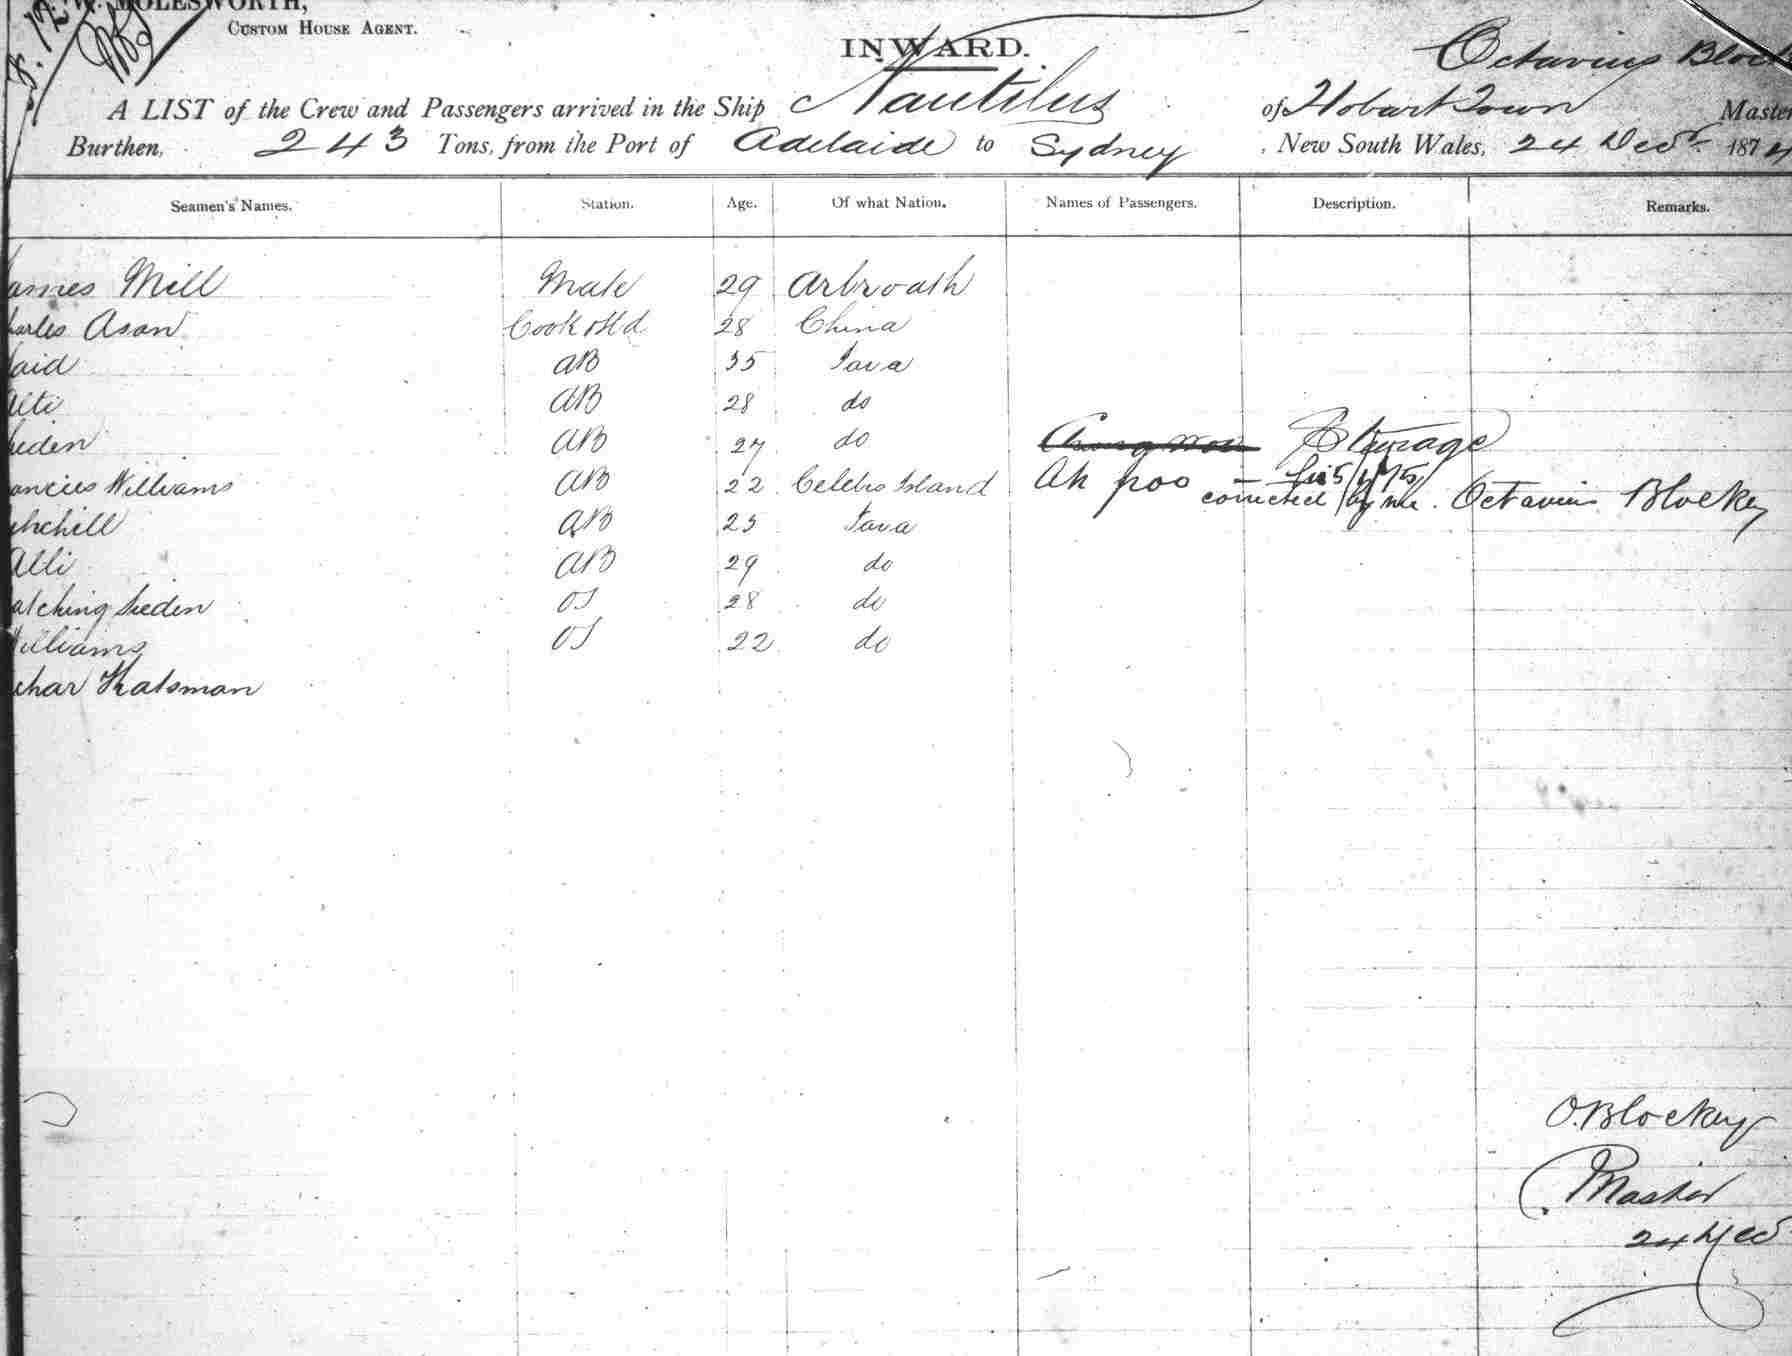 MOLESWORTH,
CUSTOM HOUSE AGENT.
INWARD.
Octavius Block
A LIST of the Crew and Passengers arrived in the Ship Nautilus of Hobart Town Master
Burthen, 243 Tons, from the Port of Adelaide to Sydney, New South Wales, 24 Decr 1874
Seamen's Names. Station. Age. Of what Nation. Names of Passengers. Description. Remarks.
ames Mill Mate 29 Arbroath
harles Asan Cook & Sd 28 China
aid AB 35 Java
Alti AB 28 do
ieden AB 27 do Steurage
ancies Williams AB 22 Celebs Island Ah poo
corrected by me. Octavius Blockey
hehill AB 23 Java
Alli AB 29 do
atching Sieden OS 28 do
illiams OS 22 do
char Katsman
O. Blockey
Master
24 Dec